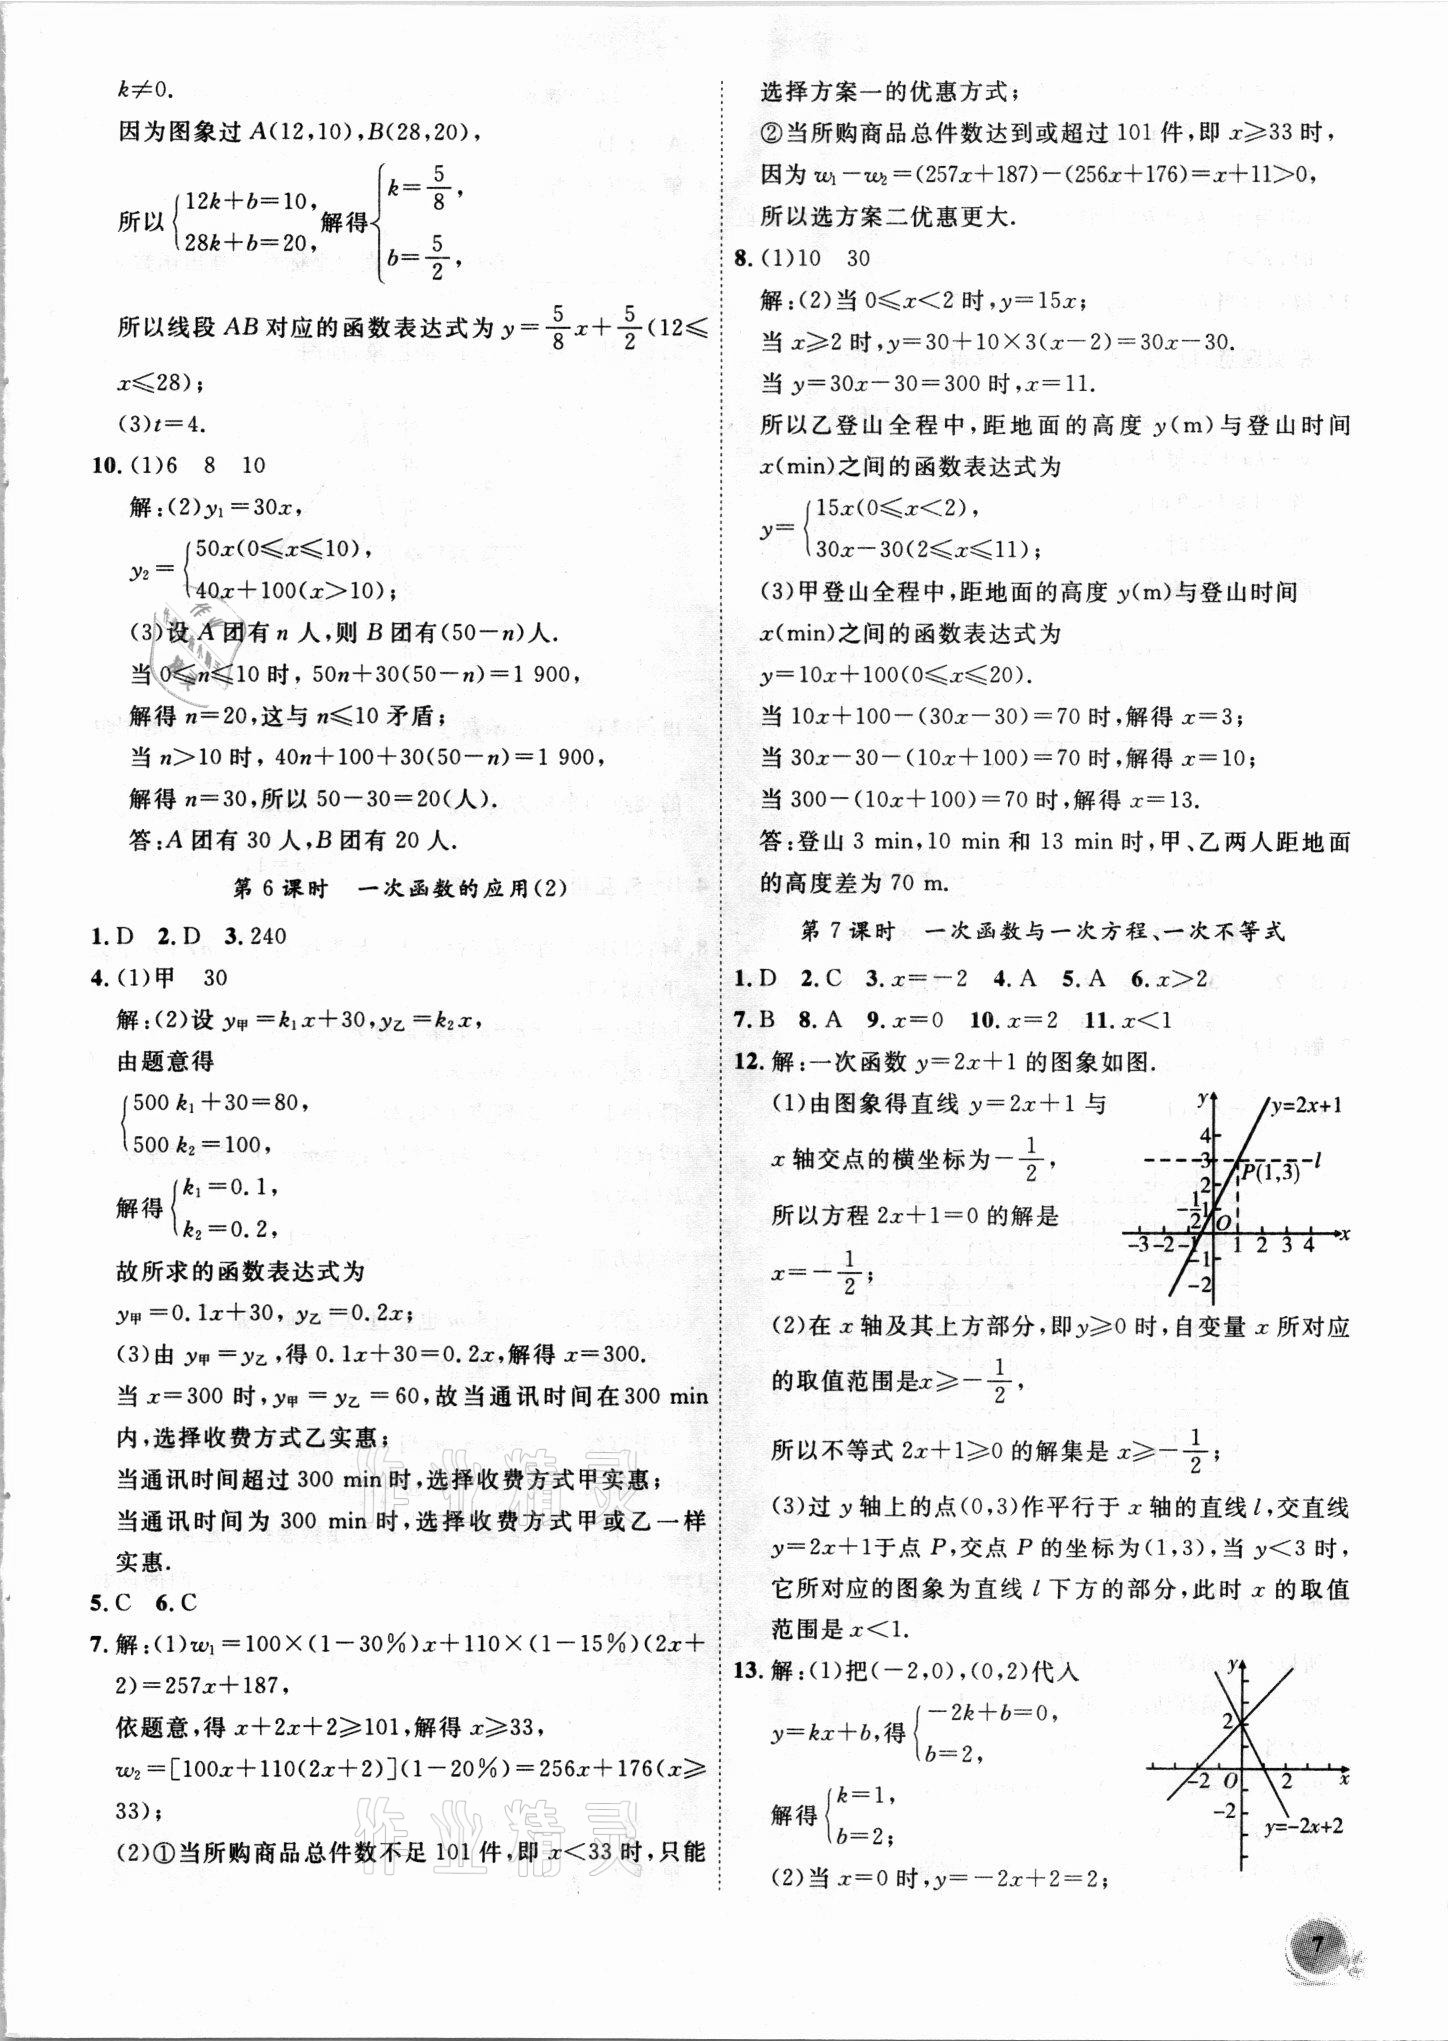 k≠0.
因为图象过 A(12,10),B(28,20),
所以{12k+b=10, 28k+b=20, 解得{k=5/8, b=5/2,
所以线段 AB 对应的函数表达式为 y=5/8x+5/2(12≤
x≤28);
(3)t=4.
10. (1)6 8 10
解:(2)y₁=30x,
y₂={50x(0≤x≤10), 40x+100(x>10);
(3)设 A 团有 n 人,则 B 团有(50-n)人.
当 0≤n≤10 时, 50n+30(50-n)=1 900,
解得 n=20,这与 n≤10 矛盾;
当 n>10 时, 40n+100+30(50-n)=1 900,
解得 n=30,所以 50-30=20(人).
答:A 团有 30 人,B 团有 20 人.
第 6 课时 一次函数的应用(2)
1. D 2. D 3. 240
4. (1)甲 30
解:(2)设 y甲=k₁x+30,y乙=k₂x,
由题意得
{500 k₁+30=80,
500 k₂=100,
解得{k₁=0.1, k₂=0.2,
故所求的函数表达式为
y甲=0.1x+30, y乙=0.2x;
(3)由 y甲=y乙,得 0.1x+30=0.2x,解得 x=300.
当 x=300 时,y甲=y乙=60,故当通讯时间在 300 min
内,选择收费方式乙实惠;
当通讯时间超过 300 min 时,选择收费方式甲实惠;
当通讯时间为 300 min 时,选择收费方式甲或乙一样
实惠.
5. C 6. C
7. 解:(1)w₁=100×(1-30%)x+110×(1-15%)(2x+
2)=257x+187,
依题意,得 x+2x+2≥101,解得 x≥33,
w₂=[100x+110(2x+2)](1-20%)=256x+176(x≥
33);
(2)①当所购商品总件数不足 101 件,即 x<33 时,只能
选择方案一的优惠方式;
②当所购商品总件数达到或超过 101 件,即 x≥33 时,
因为 w₁-w₂=(257x+187)-(256x+176)=x+11>0,
所以选方案二优惠更大.
8. (1)10 30
解:(2)当 0≤x<2 时,y=15x;
当 x≥2 时,y=30+10×3(x-2)=30x-30.
当 y=30x-30=300 时,x=11.
所以乙登山全程中,距地面的高度 y(m)与登山时间
x(min)之间的函数表达式为
y={15x(0≤x<2), 30x-30(2≤x≤11);
(3)甲登山全程中,距地面的高度 y(m)与登山时间
x(min)之间的函数表达式为
y=10x+100(0≤x≤20).
当 10x+100-(30x-30)=70 时,解得 x=3;
当 30x-30-(10x+100)=70 时,解得 x=10;
当 300-(10x+100)=70 时,解得 x=13.
答:登山 3 min,10 min 和 13 min 时,甲、乙两人距地面
的高度差为 70 m.
第 7 课时 一次函数与一次方程、一次不等式
1. D 2. C 3. x=-2 4. A 5. A 6. x>2
7. B 8. A 9. x=0 10. x=2 11. x<1
12. 解:一次函数 y=2x+1 的图象如图.
(1)由图象得直线 y=2x+1 与
x 轴交点的横坐标为-1/2,
所以方程 2x+1=0 的解是
x=-1/2;
y
y=2x+1
4
3
l
P(1,3)
2
1
-1/2
O
-3 -2 -1 1 2 3 4 x
-1
-2
(2)在 x 轴及其上方部分,即y≥0 时,自变量 x 所对应
的取值范围是x≥-1/2,
所以不等式 2x+1≥0 的解集是 x≥-1/2;
(3)过 y 轴上的点(0,3)作平行于 x 轴的直线 l,交直线
y=2x+1于点 P,交点 P 的坐标为(1,3),当 y<3 时,
它所对应的图象为直线 l 下方的部分,此时 x 的取值
范围是 x<1.
13. 解:(1)把(-2,0),(0,2)代入
y=kx+b,得{-2k+b=0, b=2,
解得{k=1, b=2;
(2)当 x=0 时,y=-2x+2=2;
y
2
-2 O 2 x
-2
y=-2x+2
作业精灵
作业精灵
作业精灵
7